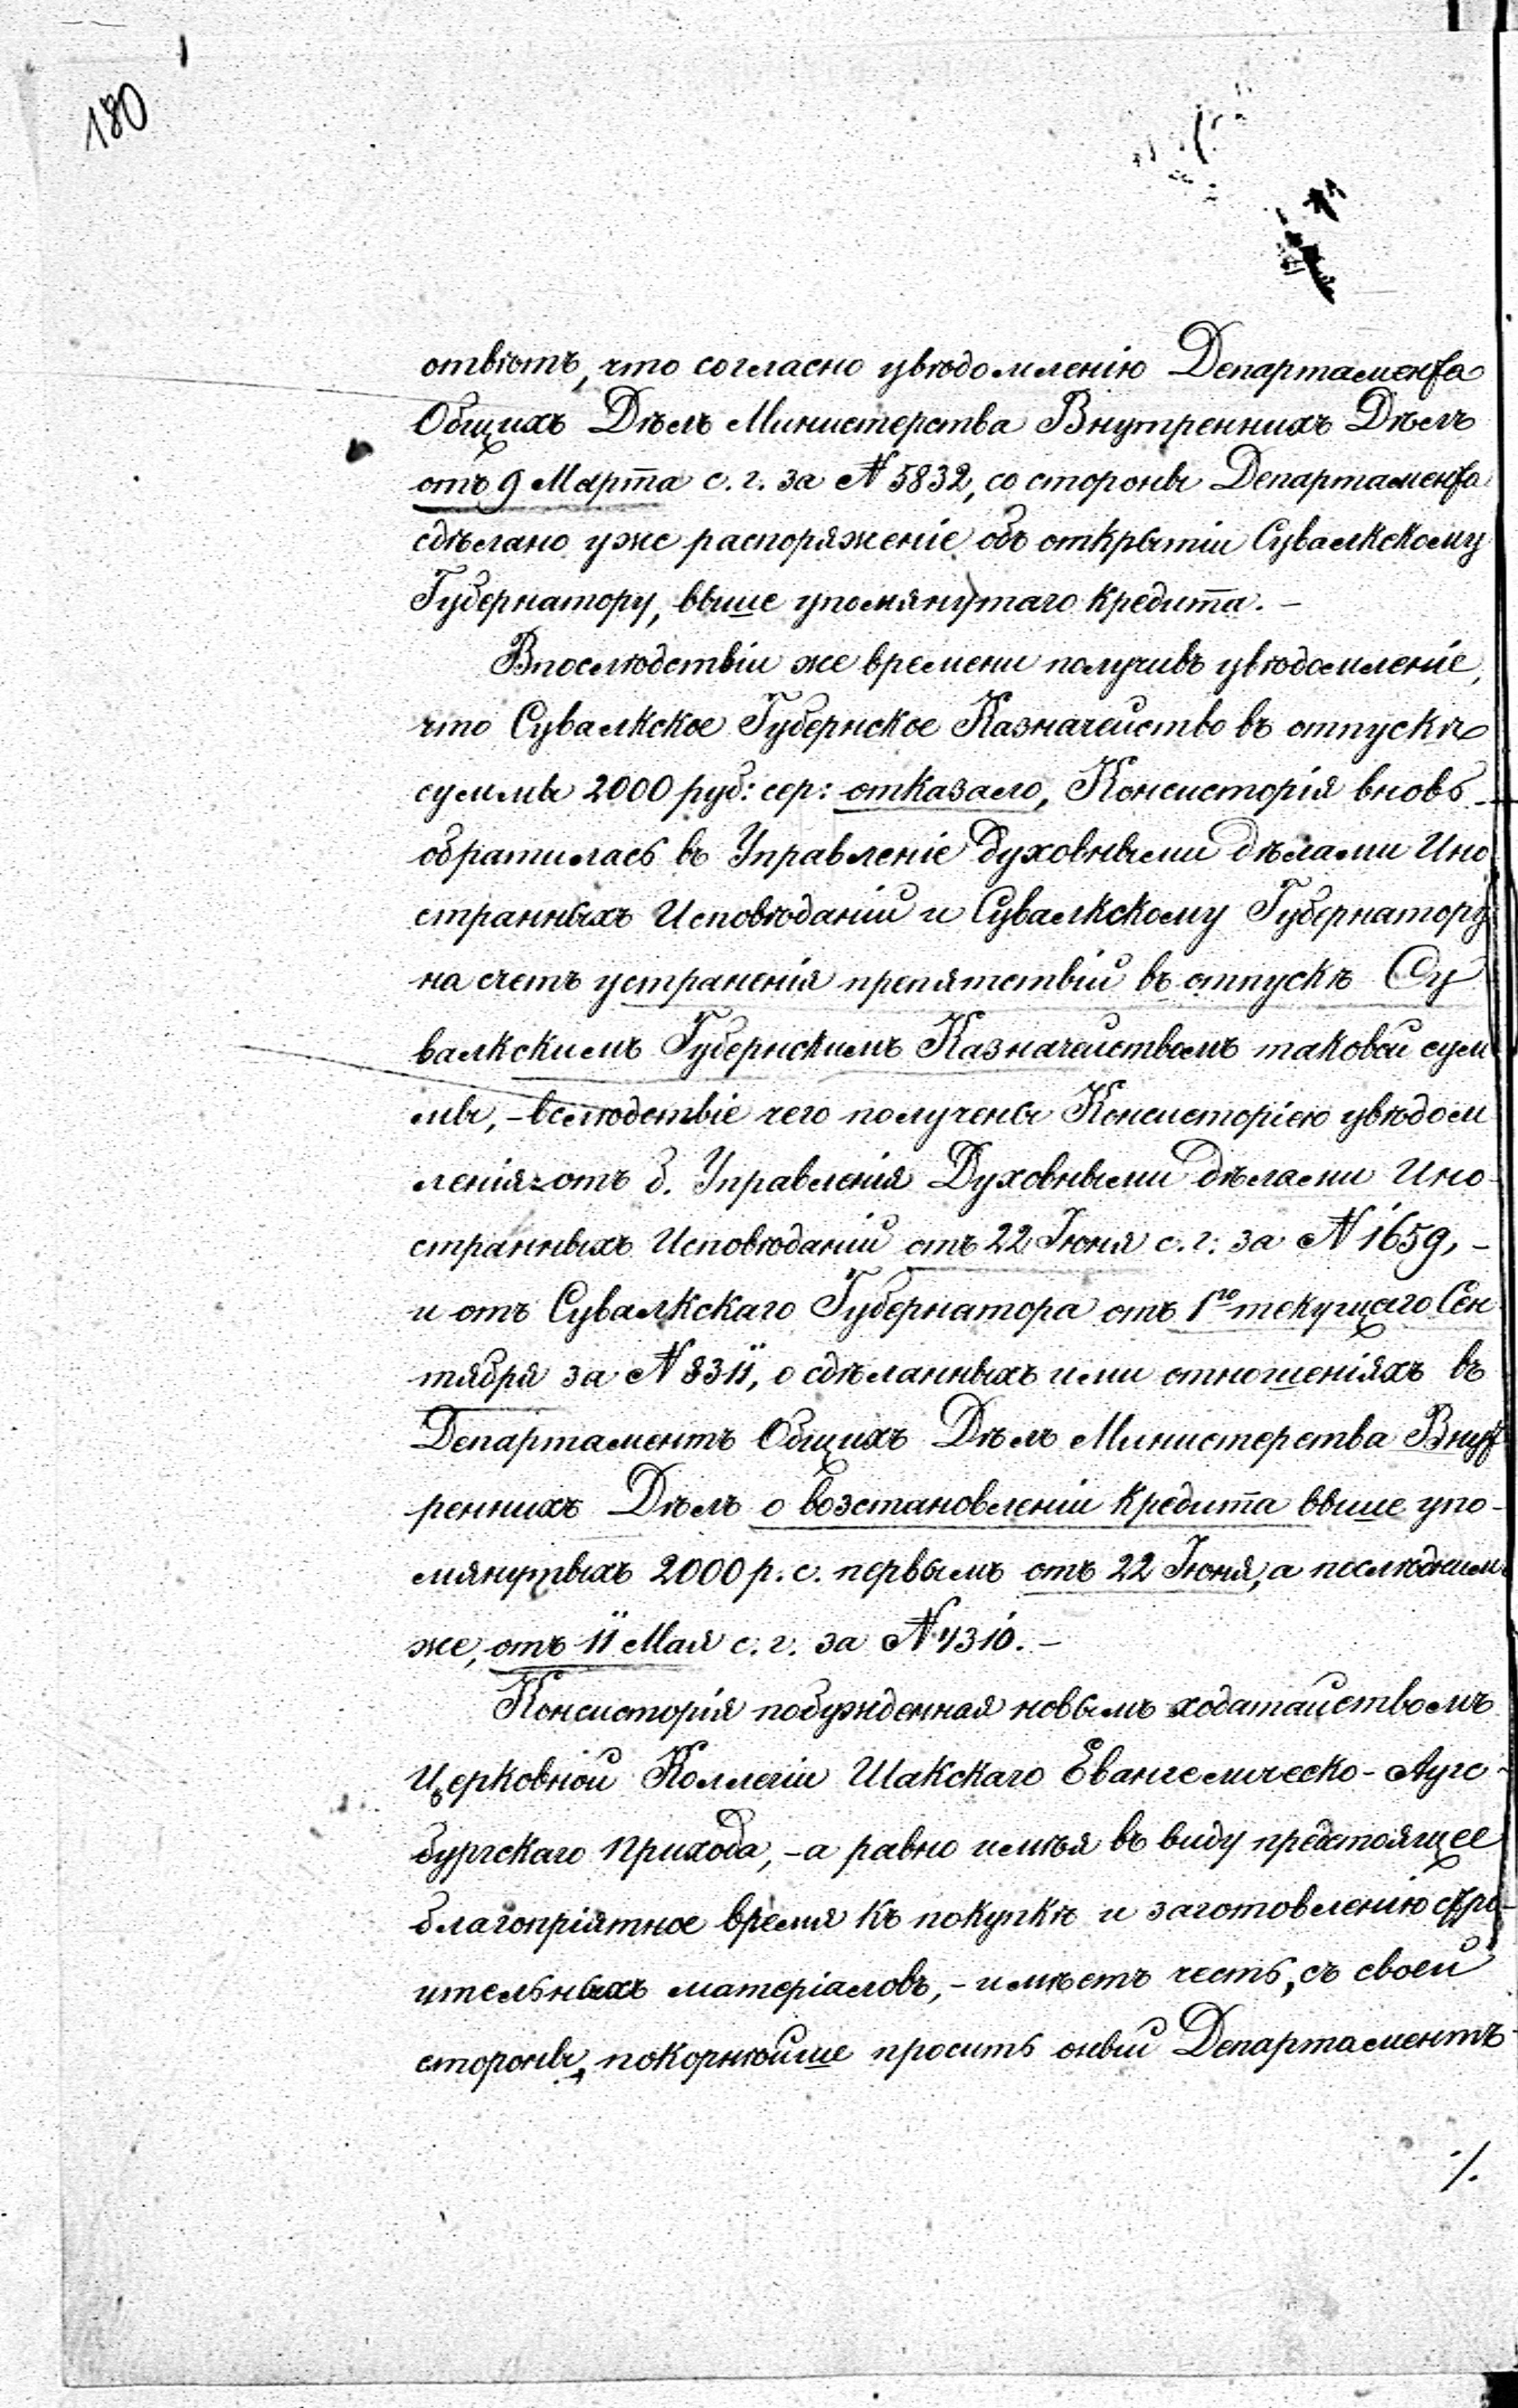 180
отвѣтъ, что согласно увѣдомленію Департамента
Общихъ Дѣлъ Министерства Внутреннихъ Дѣлъ
отъ 9 Марта с. г. за № 5832, со стороны Департамента
сдѣлано уже распоряженіе объ открытіи Сувалкскому
Губернатору, выше упомянутаго кредита. –
Впослѣдствіи же времени получивъ увѣдомленіе,
что Сувалкское Губернское Казначейство въ отпускѣ
суммы 2000 руб: сер: отказало, Консисторія вновь
обратилась въ Управленіе Духовными дѣлами Ино
странныхъ Исповѣданій и Сувалкскому Губернатору
на счетъ устраненія препятствій въ отпускѣ Су
валкскимъ Губернскимъ Казначействомъ таковой сум
мы, – вслѣдствіе чего получены Консисторіею увѣдом
ленія отъ б. Управленія Духовными дѣлами Ино-
странныхъ Исповѣданій отъ 22 Іюня с. г. за № 1659, –
и отъ Сувалкскаго Губернатора отъ 1го текущаго Сен
тября за № 8311, о сдѣланныхъ ими отношеніяхъ въ
Департаментъ Общихъ Дѣлъ Министерства Внут
реннихъ Дѣлъ о возстановленіи кредита выше упо-
мянутыхъ 2000 р. с. первымъ отъ 22 Іюня, а послѣднимъ
же, отъ 11 Мая с. г. за № 4310. –
Консисторія побужденная новымъ ходатайствомъ
Церковной Коллегіи Шакскаго Евангелическо-Аугс-
бургскаго Прихода, – а равно имѣя въ виду предстоящее
благопріятное время къ покупкѣ и заготовленію стро-
ительныхъ матеріаловъ, – имѣетъ честь, съ своей
стороны, покорнѣйше просить оный Департаментъ
·/.